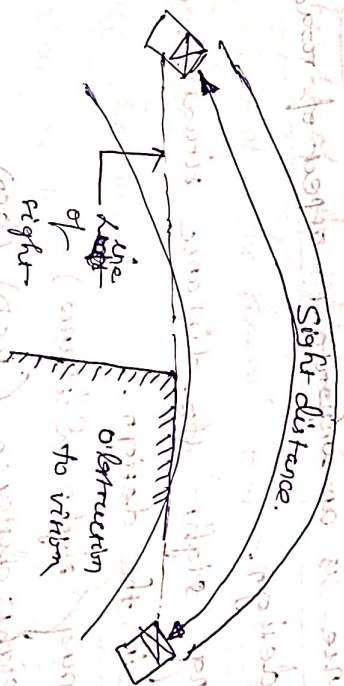 Sight distance.
Line
of
sight
obstruction
to vision